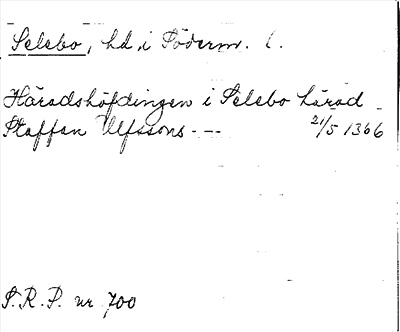 Selebo, hd, i Söderm. l.
Häradshöfdingen i Selebo härad
Staffan Ulfssons --- 21/5 1366
S.R.P. nr 700